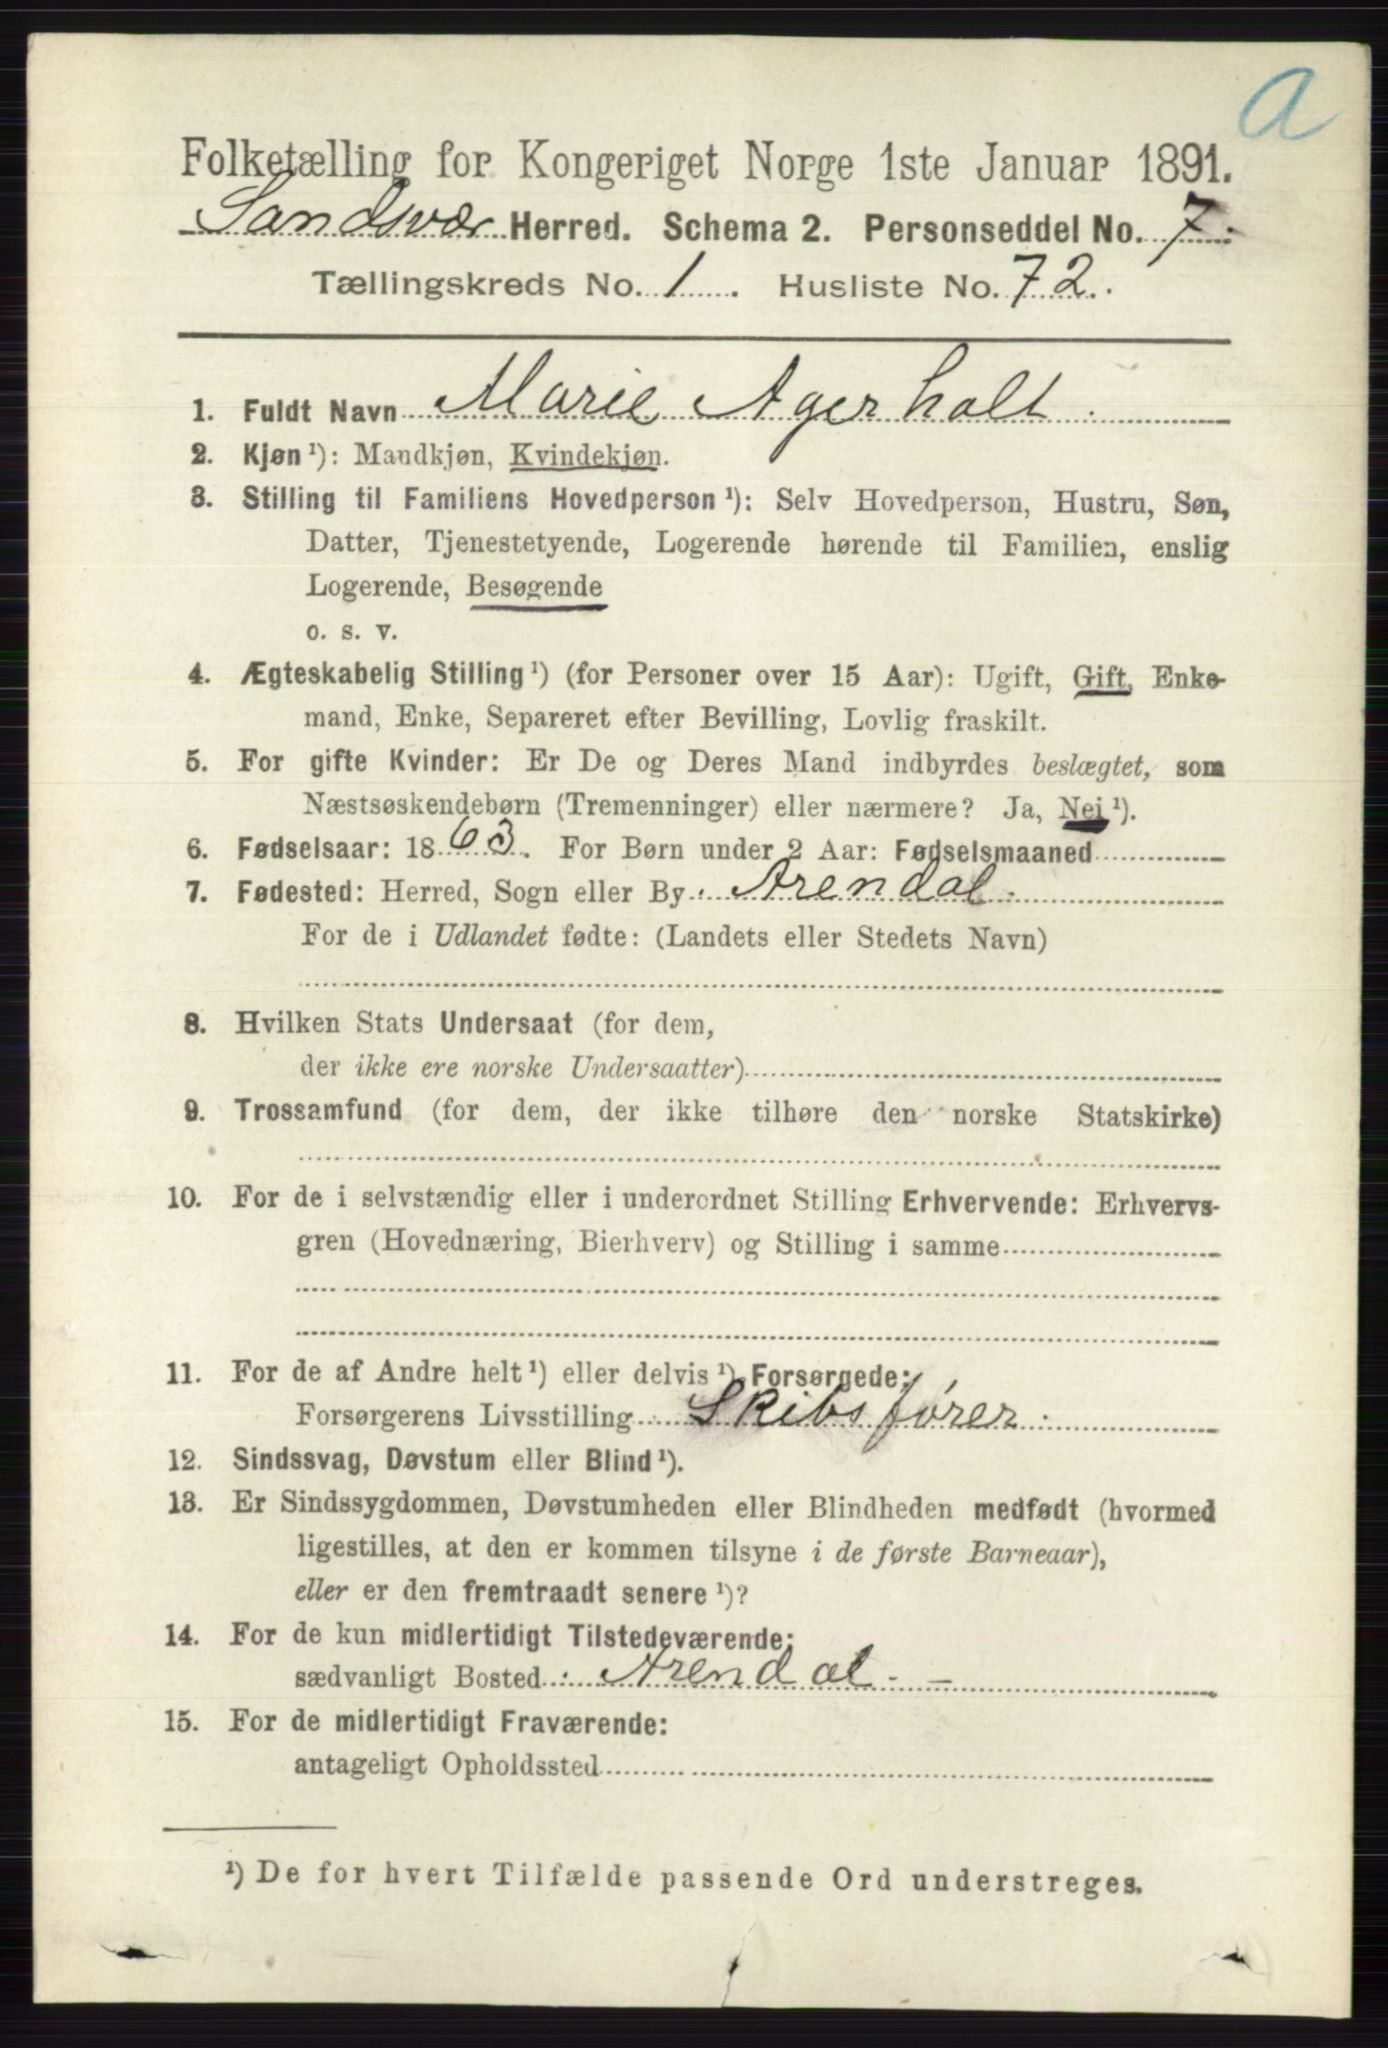 a
Folketælling for Kongeriget Norge 1ste Januar 1891.
Sandsvær Herred. Schema 2. Personseddel No. 7.
Tællingskreds No. 1. Husliste No. 72.
1. Fuldt Navn Marie Agerholt.
2. Kjøn¹): Mandkjøn, Kvindekjøn.
3. Stilling til Familiens Hovedperson¹): Selv Hovedperson, Hustru, Søn,
Datter, Tjenestetyende, Logerende hørende til Familien, enslig
Logerende, Besøgende
o. s. v.
4. Ægteskabelig Stilling¹) (for Personer over 15 Aar): Ugift, Gift, Enke-
mand, Enke, Separeret efter Bevilling, Lovlig fraskilt.
5. For gifte Kvinder: Er De og Deres Mand indbyrdes beslægtet, som
Næstsøskendebørn (Tremenninger) eller nærmere? Ja, Nei¹).
6. Fødselsaar: 1863. For Børn under 2 Aar: Fødselsmaaned
7. Fødested: Herred, Sogn eller By Arendal.
For de i Udlandet fødte: (Landets eller Stedets Navn)
8. Hvilken Stats Undersaat (for dem,
der ikke ere norske Undersaatter)
9. Trossamfund (for dem, der ikke tilhøre den norske Statskirke)
10. For de i selvstændig eller i underordnet Stilling Erhvervende: Erhvervs-
gren (Hovednæring, Bierhverv) og Stilling i samme
11. For de af Andre helt¹) eller delvis¹) Forsørgede:
Forsørgerens Livsstilling Skibsfører.
12. Sindssvag, Døvstum eller Blind¹).
13. Er Sindssygdommen, Døvstumheden eller Blindheden medfødt (hvormed
ligestilles, at den er kommen tilsyne i de første Barneaar),
eller er den fremtraadt senere¹)?
14. For de kun midlertidigt Tilstedeværende:
sædvanligt Bosted: Arendal. -
15. For de midlertidigt Fraværende:
antageligt Opholdssted
¹) De for hvert Tilfælde passende Ord understreges.